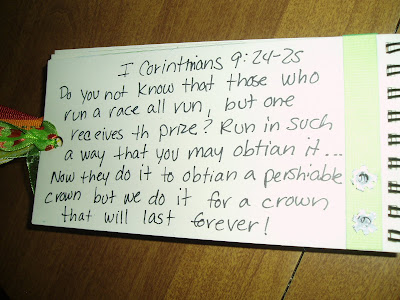 I Corinthians 9:24-25
Do you not know that those who
run a race all run, but one
receives th prize? Run in such
a way that you may obtian it...
Now they do it to obtian a pershiable
crown but we do it for a crown
that will last forever!